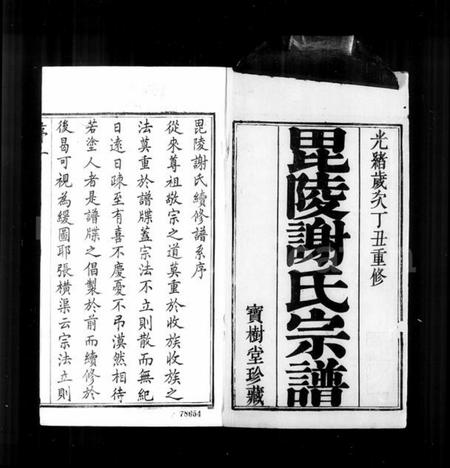 光緒歲次丁丑重修
毘陵謝氏宗譜
寶樹堂珍藏
毘陵謝氏續修譜系序
從來尊祖敬宗之道莫重於收族收族之
法莫重於譜牒蓋宗法不立則散而無紀
日遠日疎至有喜不慶憂不弔漠然相待
若塗人者是譜牒之倡製於前而續修於
後易可視為緩圖耶張橫渠云宗法立則
78654